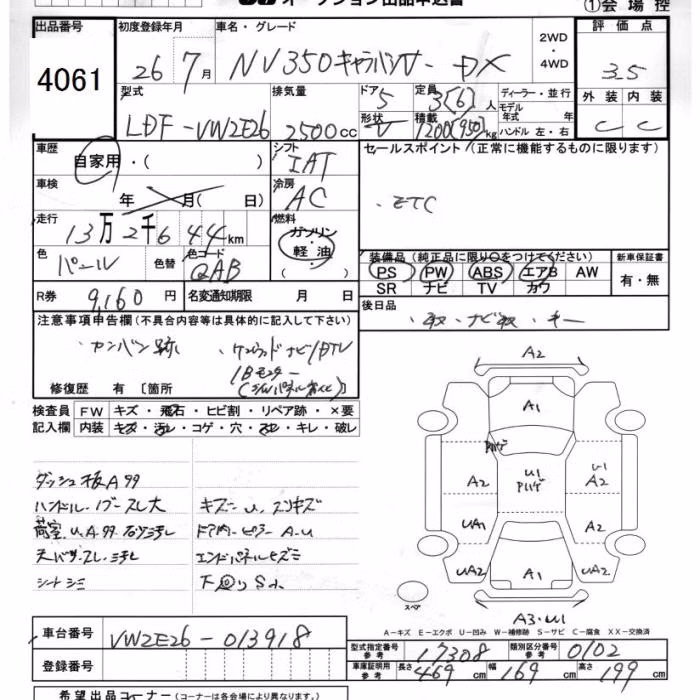 オークション出品申込書 ①会場控
出品番号 初度登録年月 車名・グレード 2WD・4WD 評価点
4061 26 7月 NV350キャラバンV-DX 3.5
型式 排気量 ドア 5 定員 3(6)人 ディーラー・並行 外装 内装
LDF-VW2E26 2500cc 形状 V 積載 1200(950)kg モデル年式 年 ハンドル 左・右 C C
車歴 自家用・( ) シフト IAT セールスポイント(正常に機能するものに限ります)
車検 年 月( 日) 冷房 AC ・ETC
走行 13万2千644km 燃料 ガソリン・軽油・( )
色 パール 色替 色コード QAB
装備品(純正品に限り○をつけてください) 新車保証書
PS PW ABS エアB AW 有・無
SR ナビ TV カワ
R券 9,160円 名変通知期限 月 日
後日品
・取・ナビ取・キー
注意事項申告欄(不具合内容等は具体的に記入して下さい)
・カンバン跡 ・ケンウッドナビ/DTV
/Bモニター
修復歴 有 [箇所 ]
検査員 FW キズ・飛石・ヒビ割・リペア跡・×要
記入欄 内装 キズ・汚レ・コゲ・穴・スレ・キレ・破レ
ダッシュ板Aタタ
ハンドル・ブースレ大 キズー
荷室U.Aタタ
天バリスレ・ミヨレ エンドパネルヒズミ
シートシミ 下回りS
A2
A1
A2 U1 U1 A2
UA1 A2
UA2 A1 UA2
スペア
A3・U1
A-キズ E-エクボ U-凹み W-補修跡 S-サビ C-腐食 XX-交換済
車台番号 VW2E26-013918
登録番号
型式指定番号 参考 17308 類別区分番号 参考 0102
車庫証明用 参考 長さ 469cm 幅 169cm 高さ 199cm
希望出品コーナー(コーナーは各会場により異なります。)